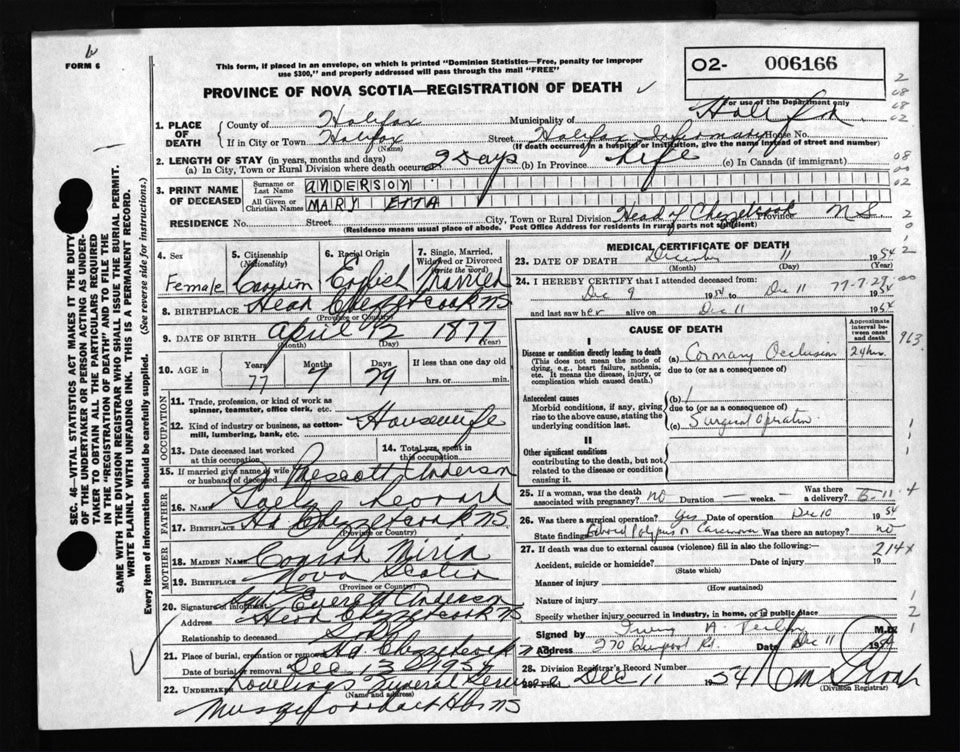 FORM 6
This form, if placed in an envelope, on which is printed "Dominion Statistics—Free, penalty for improper
use $300," and properly addressed will pass through the mail "FREE"
PROVINCE OF NOVA SCOTIA—REGISTRATION OF DEATH
O2- 006166
For use of the Department only
Halifax
1. PLACE OF DEATH
County of Halifax Municipality of
If in City or Town Halifax Street Halifax Infirmary House No.
(Name) (If death occurred in a hospital or institution, give the name instead of street and number)
2. LENGTH OF STAY (in years, months and days)
(a) In City, Town or Rural Division where death occurred 2 Days (b) In Province Life (c) In Canada (if immigrant)
3. PRINT NAME OF DECEASED
Surname or Last Name ANDERSON
All Given or Christian Names MARY ETTA
RESIDENCE No. Street City, Town or Rural Division Head of Chezzetcook Province NS
(Residence means usual place of abode. Post Office Address for residents in rural parts not sufficient)
4. Sex Female
5. Citizenship (Nationality) Canadian
6. Racial Origin English
7. Single, Married, Widowed or Divorced (write the word) Married
8. BIRTHPLACE Head Chezzetcook NS
(Province or Country)
9. DATE OF BIRTH April 12 1877
(Month) (Day) (Year)
10. AGE in Years 77 Months 7 Days 29 If less than one day old hrs. or min.
OCCUPATION
11. Trade, profession, or kind of work as spinner, teamster, office clerk, etc.
12. Kind of industry or business, as cotton-mill, lumbering, bank, etc. Housewife
13. Date deceased last worked at this occupation
14. Total yrs. spent in this occupation
15. If married give name of wife or husband of deceased Prescott Anderson
FATHER
16. NAME Gaetz Leonard
17. BIRTHPLACE Hd Chezzetcook NS
(Province or Country)
MOTHER
18. MAIDEN NAME Conrod Miria
19. BIRTHPLACE Nova Scotia
(Province or Country)
20. Signature of informant Everett Anderson
Address Head Chezzetcook NS
Relationship to deceased Son
21. Place of burial, cremation or removal Hd. Chezzetcook NS
Date of burial or removal Dec 13 1954
22. UNDERTAKER Funeral Service
(Name and address)
Musquodoboit Hbr NS
MEDICAL CERTIFICATE OF DEATH
23. DATE OF DEATH December 11 1954
(Month) (Day) (Year)
24. I HEREBY CERTIFY that I attended deceased from:
Dec 9 1954 to Dec 11 1954
and last saw her alive on Dec 11 1954
77-7-29
CAUSE OF DEATH
Approximate interval between onset and death
I
Disease or condition directly leading to death
(This does not mean the mode of dying, e.g., heart failure, asthenia, etc. It means the disease, injury, or complication which caused death.)
(a) Coronary Occlusion 24 hrs.
due to (or as a consequence of)
Antecedent causes
Morbid conditions, if any, giving rise to the above cause, stating the underlying condition last.
(b)
due to (or as a consequence of)
(c) Surgical Operation
II
Other significant conditions
contributing to the death, but not related to the disease or condition causing it.
25. If a woman, was the death associated with pregnancy? no Duration — weeks. — Was there a delivery?
26. Was there a surgical operation? Yes Date of operation Dec 10 1954
State findings Polypus or Carcinoma Was there an autopsy? no
27. If death was due to external causes (violence) fill in also the following:—
Accident, suicide or homicide? Date of injury 19
(State which)
Manner of injury
(How sustained)
Nature of injury
Specify whether injury occurred in industry, in home, or in public place
Signed by Irving A. Perlin M.D.
Address 270 Quinpool Rd. Date Dec 11 1954
28. Division Registrar's Record Number
29. Filed Dec 11 1954
(Division Registrar)
963
214x
SEC. 46—VITAL STATISTICS ACT MAKES IT THE DUTY
OF THE UNDERTAKER OR PERSON ACTING AS UNDERTAKER TO OBTAIN ALL THE PARTICULARS REQUIRED
IN THE "REGISTRATION OF DEATH" AND TO FILE THE
SAME WITH THE DIVISION REGISTRAR WHO SHALL ISSUE THE BURIAL PERMIT.
WRITE PLAINLY WITH UNFADING INK. THIS IS A PERMANENT RECORD.
Every item of information should be carefully supplied. (See reverse side for instructions.)